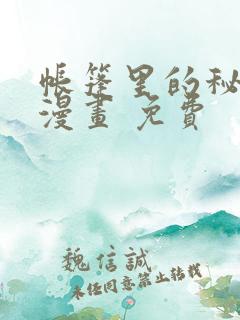 帳篷里的秘
漫畫 免費
魏信誠
未经同意禁止转载